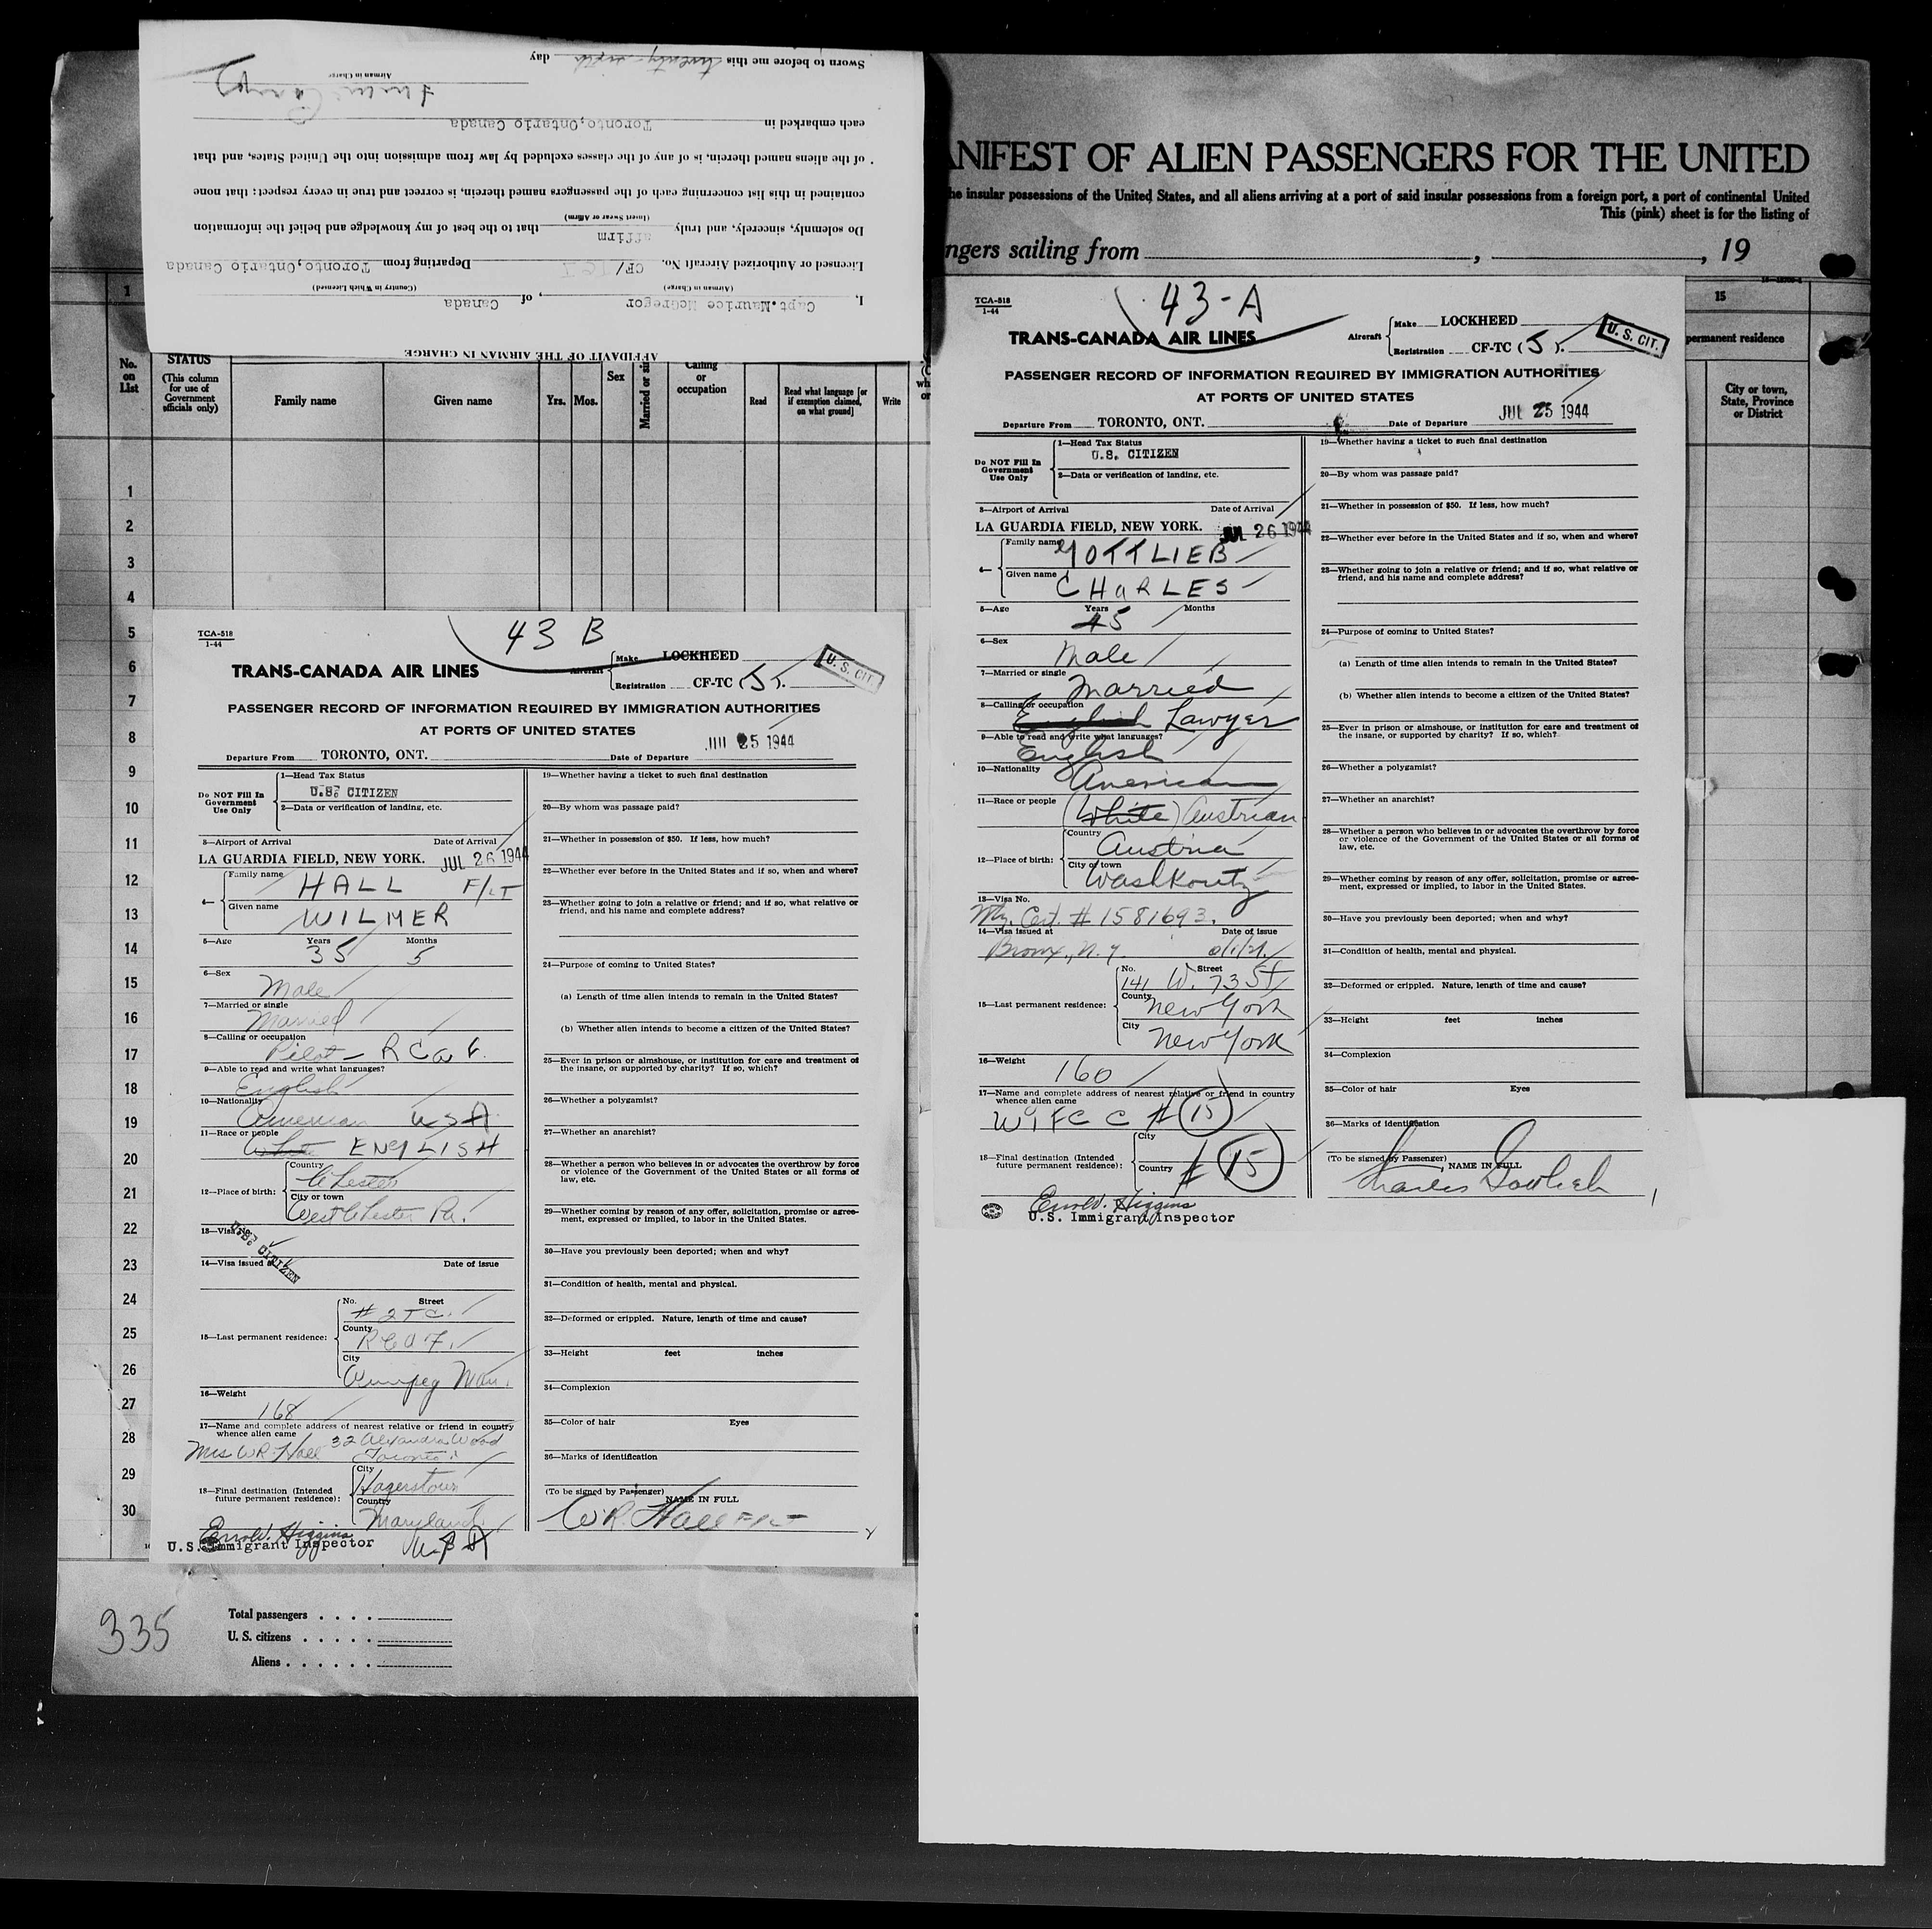 Sworn to before me this twenty-sixth day
Airman in Charge
each embarked in Toronto,Ontario Canada
of the aliens named therein, is of any of the classes excluded by law from admission into the United States, and that
contained in this list concerning each of the passengers named therein, is correct and true in every respect: that none
(Insert Swear or Affirm)
Do solemnly, sincerely, and truly affirm that to the best of my knowledge and belief the information
Licensed or Authorized Aircraft No. CF/TCJ Departing from Toronto,Ontario Canada
(Airman in Charge) (Country in Which Licensed)
I, Capt.Maurice McGregor, of Canada
AFFIDAVIT OF THE AIRMAN IN CHARGE
ANIFEST OF ALIEN PASSENGERS FOR THE UNITED
he insular possessions of the United States, and all aliens arriving at a port of said insular possessions from a foreign port, a port of continental United
This (pink) sheet is for the listing of
ngers sailing from , , 19
1
15
permanent residence
City or town, State, Province or District
No. on List
STATUS
(This column for use of Government officials only)
Family name
Given name
Yrs.
Mos.
Sex
Married or si
Calling or occupation
Read
Read what language [or if exemption claimed, on what ground]
Write
1
2
3
4
5
6
7
8
9
10
11
12
13
14
15
16
17
18
19
20
21
22
23
24
25
26
27
28
29
30
Total passengers
U. S. citizens
Aliens
335
43 B
TCA-518
1-44
TRANS-CANADA AIR LINES
Aircraft
Make LOCKHEED
Registration CF-TC (J).
U. S. CIT.
PASSENGER RECORD OF INFORMATION REQUIRED BY IMMIGRATION AUTHORITIES
AT PORTS OF UNITED STATES
Departure From TORONTO, ONT. Date of Departure JUL 25 1944
Do NOT Fill In Government Use Only
1—Head Tax Status
U.S. CITIZEN
2—Data or verification of landing, etc.
3—Airport of Arrival Date of Arrival
LA GUARDIA FIELD, NEW YORK. JUL 26 1944
4—
Family name HALL F/LT
Given name WILMER
5—Age Years 35 Months 5
6—Sex Male
7—Married or single Married
8—Calling or occupation
Pilot - RCAF.
9—Able to read and write what languages?
English
10—Nationality
American USA
11—Race or people
White ENGLISH
12—Place of birth:
Country Chester
City or town
West Chester Pa.
13—Visa
U.S. CITIZEN
14—Visa issued at Date of issue
15—Last permanent residence:
No. Street
# 2 T C.
County
RCAF.
City
Winnipeg Man.
16—Weight
168
17—Name and complete address of nearest relative or friend in country whence alien came
Mrs WR. Hall 32 Alexandra Wood
Toronto
18—Final destination (Intended future permanent residence):
City
Hagerstown
Country
Maryland
USA
Errol V. Higgins
U.S. Immigrant Inspector
19—Whether having a ticket to such final destination
20—By whom was passage paid?
21—Whether in possession of $50. If less, how much?
22—Whether ever before in the United States and if so, when and where?
23—Whether going to join a relative or friend; and if so, what relative or friend, and his name and complete address?
24—Purpose of coming to United States?
(a) Length of time alien intends to remain in the United States?
(b) Whether alien intends to become a citizen of the United States?
25—Ever in prison or almshouse, or institution for care and treatment of the insane, or supported by charity? If so, which?
26—Whether a polygamist?
27—Whether an anarchist?
28—Whether a person who believes in or advocates the overthrow by force or violence of the Government of the United States or all forms of law, etc.
29—Whether coming by reason of any offer, solicitation, promise or agreement, expressed or implied, to labor in the United States.
30—Have you previously been deported; when and why?
31—Condition of health, mental and physical.
32—Deformed or crippled. Nature, length of time and cause?
33—Height feet inches
34—Complexion
35—Color of hair Eyes
36—Marks of identification
(To be signed by Passenger)
NAME IN FULL
W.R. Hall F/LT
43-A
TCA-518
1-44
TRANS-CANADA AIR LINES
Aircraft
Make LOCKHEED
Registration CF-TC (J).
U. S. CIT.
PASSENGER RECORD OF INFORMATION REQUIRED BY IMMIGRATION AUTHORITIES
AT PORTS OF UNITED STATES
Departure From TORONTO, ONT. Date of Departure JUL 25 1944
Do NOT Fill In Government Use Only
1—Head Tax Status
U.S. CITIZEN
2—Data or verification of landing, etc.
3—Airport of Arrival Date of Arrival
LA GUARDIA FIELD, NEW YORK. JUL 26 1944
4—
Family name GOTTLIEB
Given name CHARLES
5—Age Years 45 Months
6—Sex Male
7—Married or single Married
8—Calling or occupation
English Lawyer
9—Able to read and write what languages?
English
10—Nationality American
11—Race or people (White) Austrian
12—Place of birth:
Country
Austria
City or town
Washkoutz
13—Visa No.
Cert. # 1581693.
14—Visa issued at Date of issue
Bronx, N.Y.
15—Last permanent residence:
No. Street
141 W. 73 St
County New York
City New York
16—Weight
160
17—Name and complete address of nearest relative or friend in country whence alien came
WIFE C # 15
18—Final destination (Intended future permanent residence):
City
Country # 15
Errol V. Higgins
U.S. Immigrant Inspector
19—Whether having a ticket to such final destination
20—By whom was passage paid?
21—Whether in possession of $50. If less, how much?
22—Whether ever before in the United States and if so, when and where?
23—Whether going to join a relative or friend; and if so, what relative or friend, and his name and complete address?
24—Purpose of coming to United States?
(a) Length of time alien intends to remain in the United States?
(b) Whether alien intends to become a citizen of the United States?
25—Ever in prison or almshouse, or institution for care and treatment of the insane, or supported by charity? If so, which?
26—Whether a polygamist?
27—Whether an anarchist?
28—Whether a person who believes in or advocates the overthrow by force or violence of the Government of the United States or all forms of law, etc.
29—Whether coming by reason of any offer, solicitation, promise or agreement, expressed or implied, to labor in the United States.
30—Have you previously been deported; when and why?
31—Condition of health, mental and physical.
32—Deformed or crippled. Nature, length of time and cause?
33—Height feet inches
34—Complexion
35—Color of hair Eyes
36—Marks of identification
(To be signed by Passenger)
NAME IN FULL
Charles Gottlieb